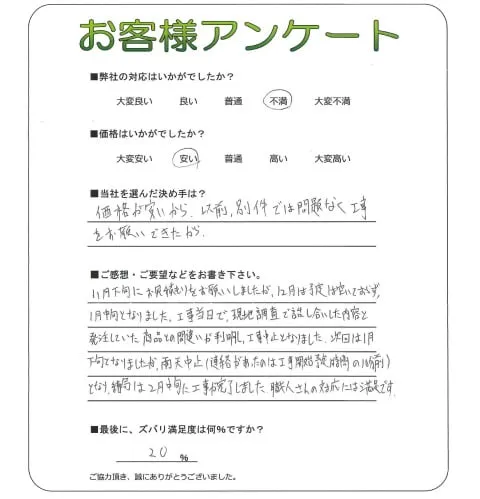 お客様アンケート
■弊社の対応はいかがでしたか？
大変良い　良い　普通　不満　大変不満
■価格はいかがでしたか？
大変安い　安い　普通　高い　大変高い
■当社を選んだ決め手は？
価格が安いから、以前、別件では問題なく工事
をお願いできたから.
■ご感想・ご要望などをお書き下さい。
11月下旬にお見積もりをお願いしましたが、12月は予定は空いておらず、
1月中旬となりました。工事当日で、現地調査で話し合いした内容と
発注していた商品との間違いが判明し、工事中止となりました。次回は1月
下旬となりましたが、雨天中止(連絡があったのは工事開始予定時間の1時間前)
となり、結局は2月中旬に工事が完了しました。職人さんの対応には満足です.
■最後に、ズバリ満足度は何%ですか？
20 %
ご協力頂き、誠にありがとうございました。